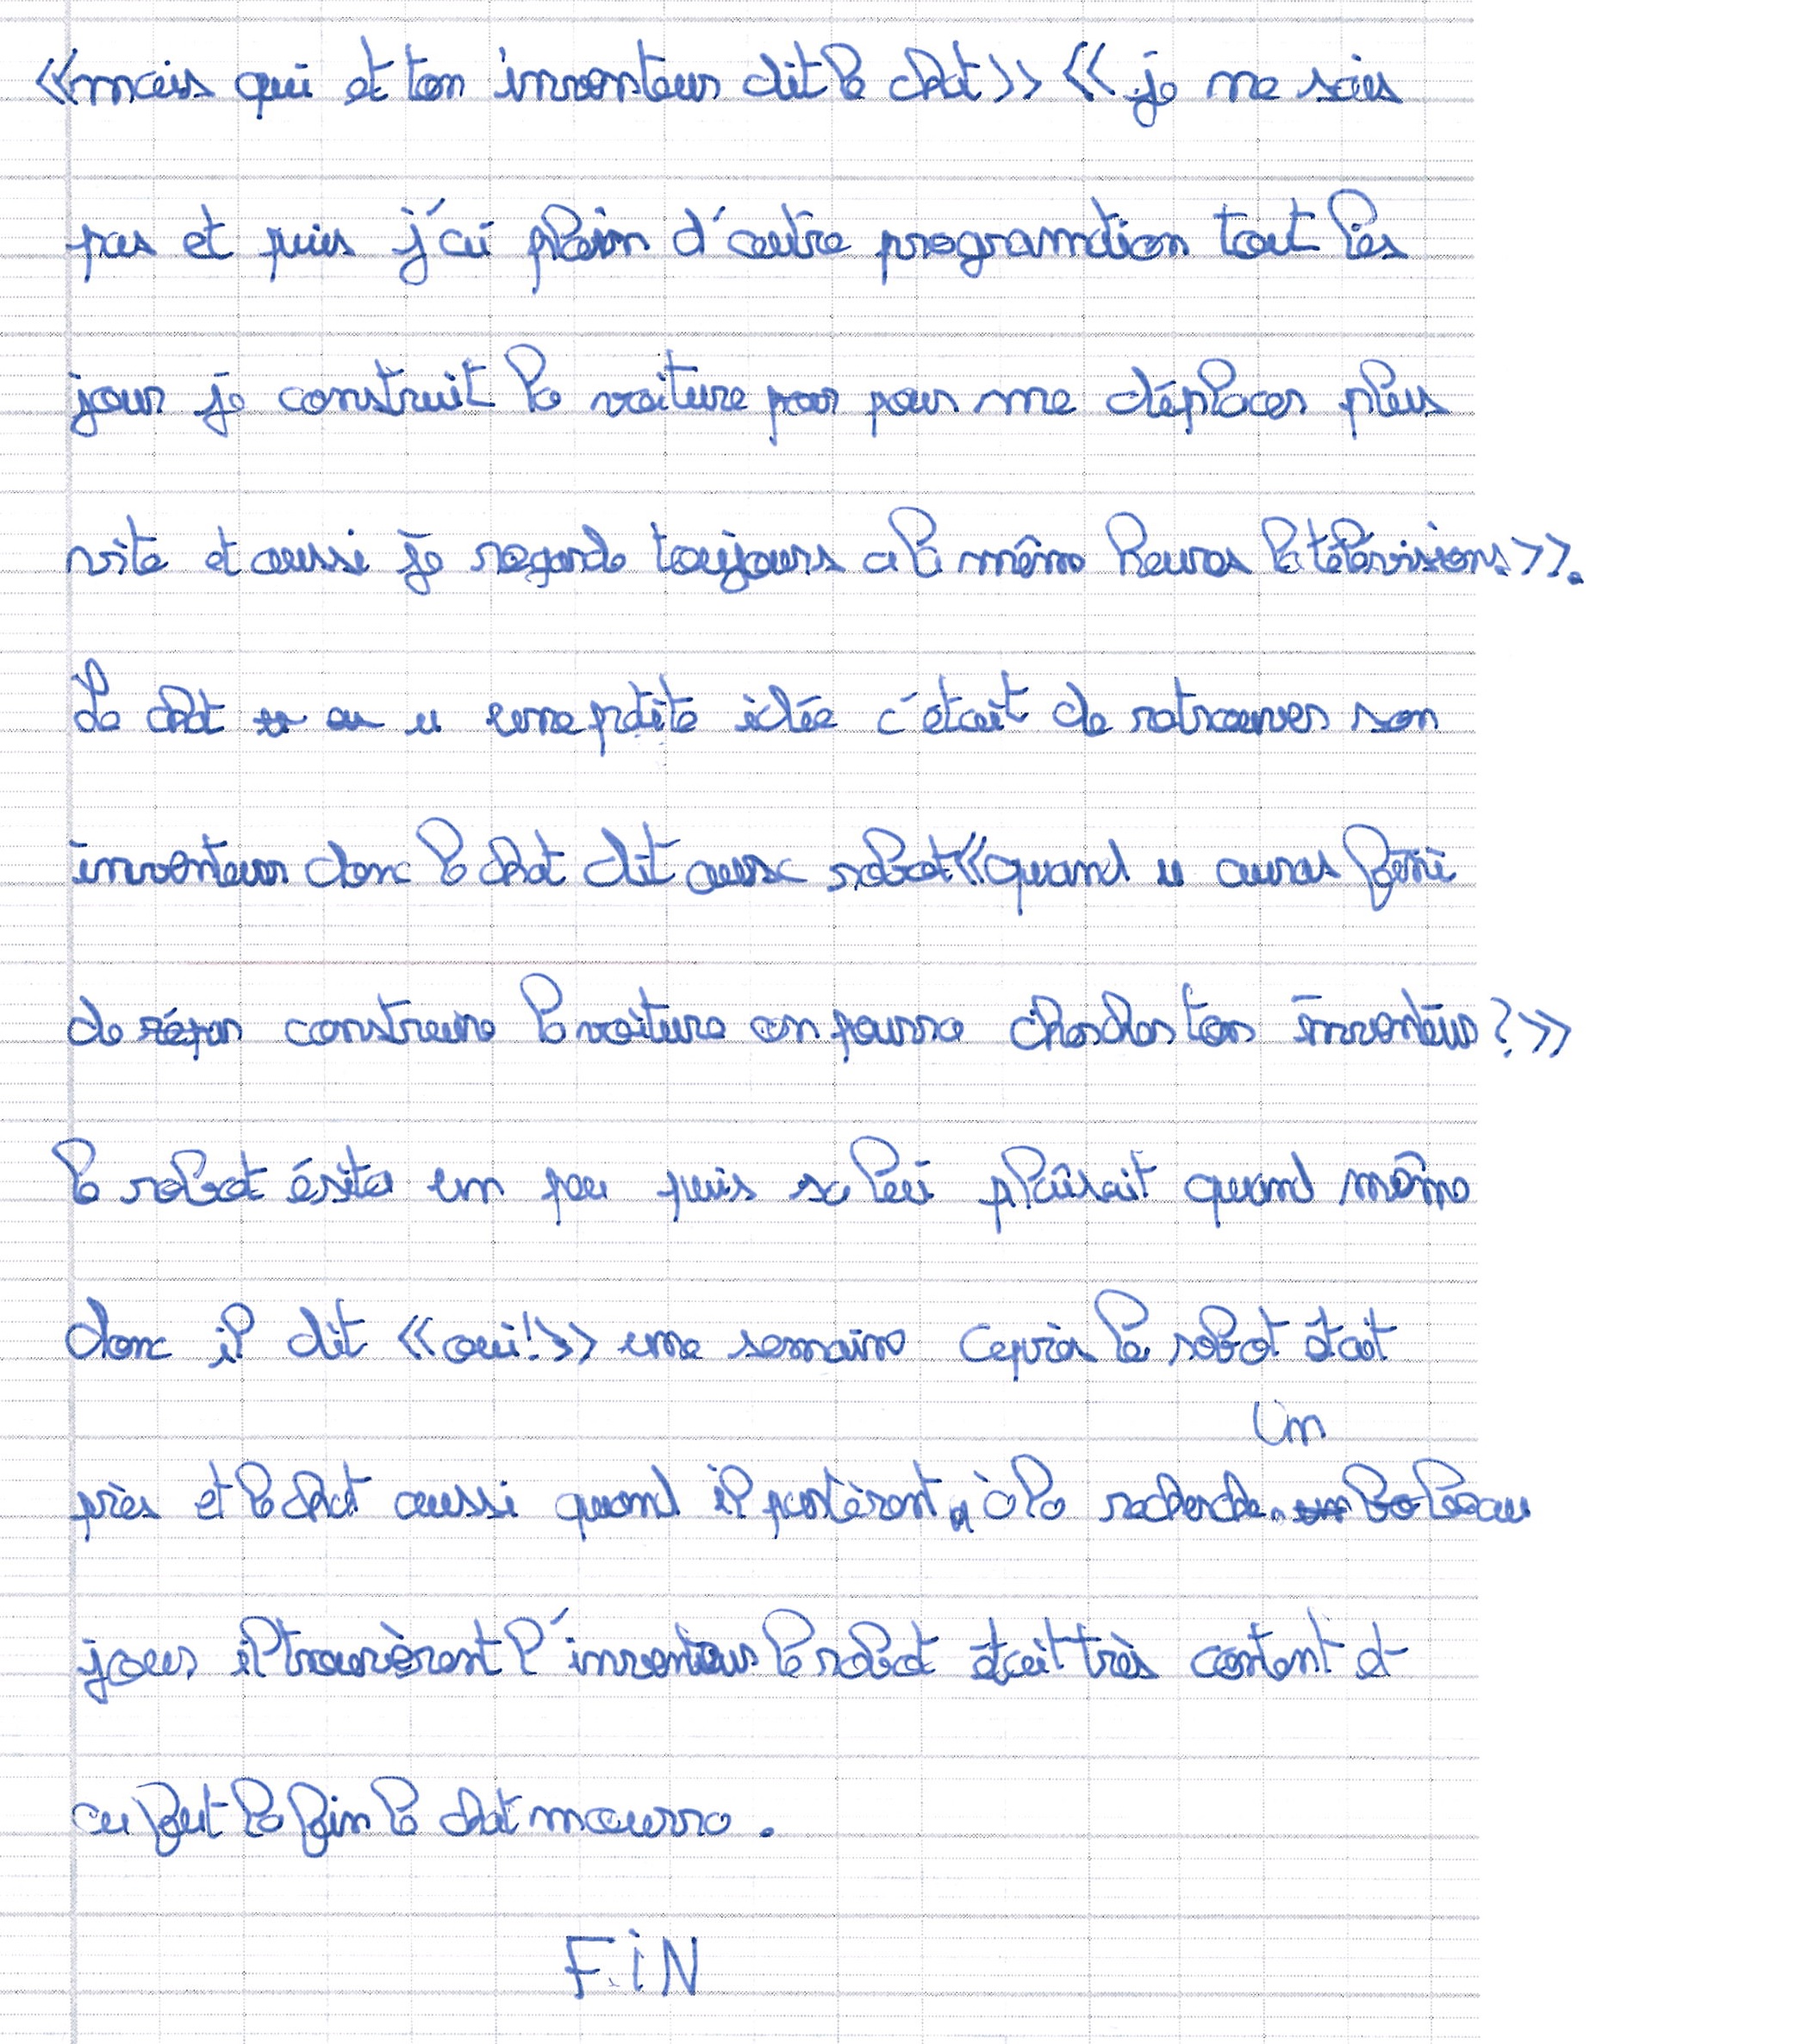 «mais qui et ton inventeur dit le chat» « je ne sais
pas et puis j'ai plein d'autre programation tout les
jour je construit la voiture pour me déplacer plus
vite et aussi je regarde toujours a la même heures la télévisions».
Le chat u une petite idée c'était de retrouver son
inventeur donc le chat dit aux robot «quand u auras fini
de construire la voiture on pourra chercher ton inventeur?»
le robot ésita un peu puis sa lui plaîsait quand même
donc il dit «oui!» une semaine après le robot était
près et le chat aussi quand il partèrent à la recherche. Un beau
jour il trouvèrent l'inventeur le robot était très content et
au fut la fin le chat mourra.
FiN